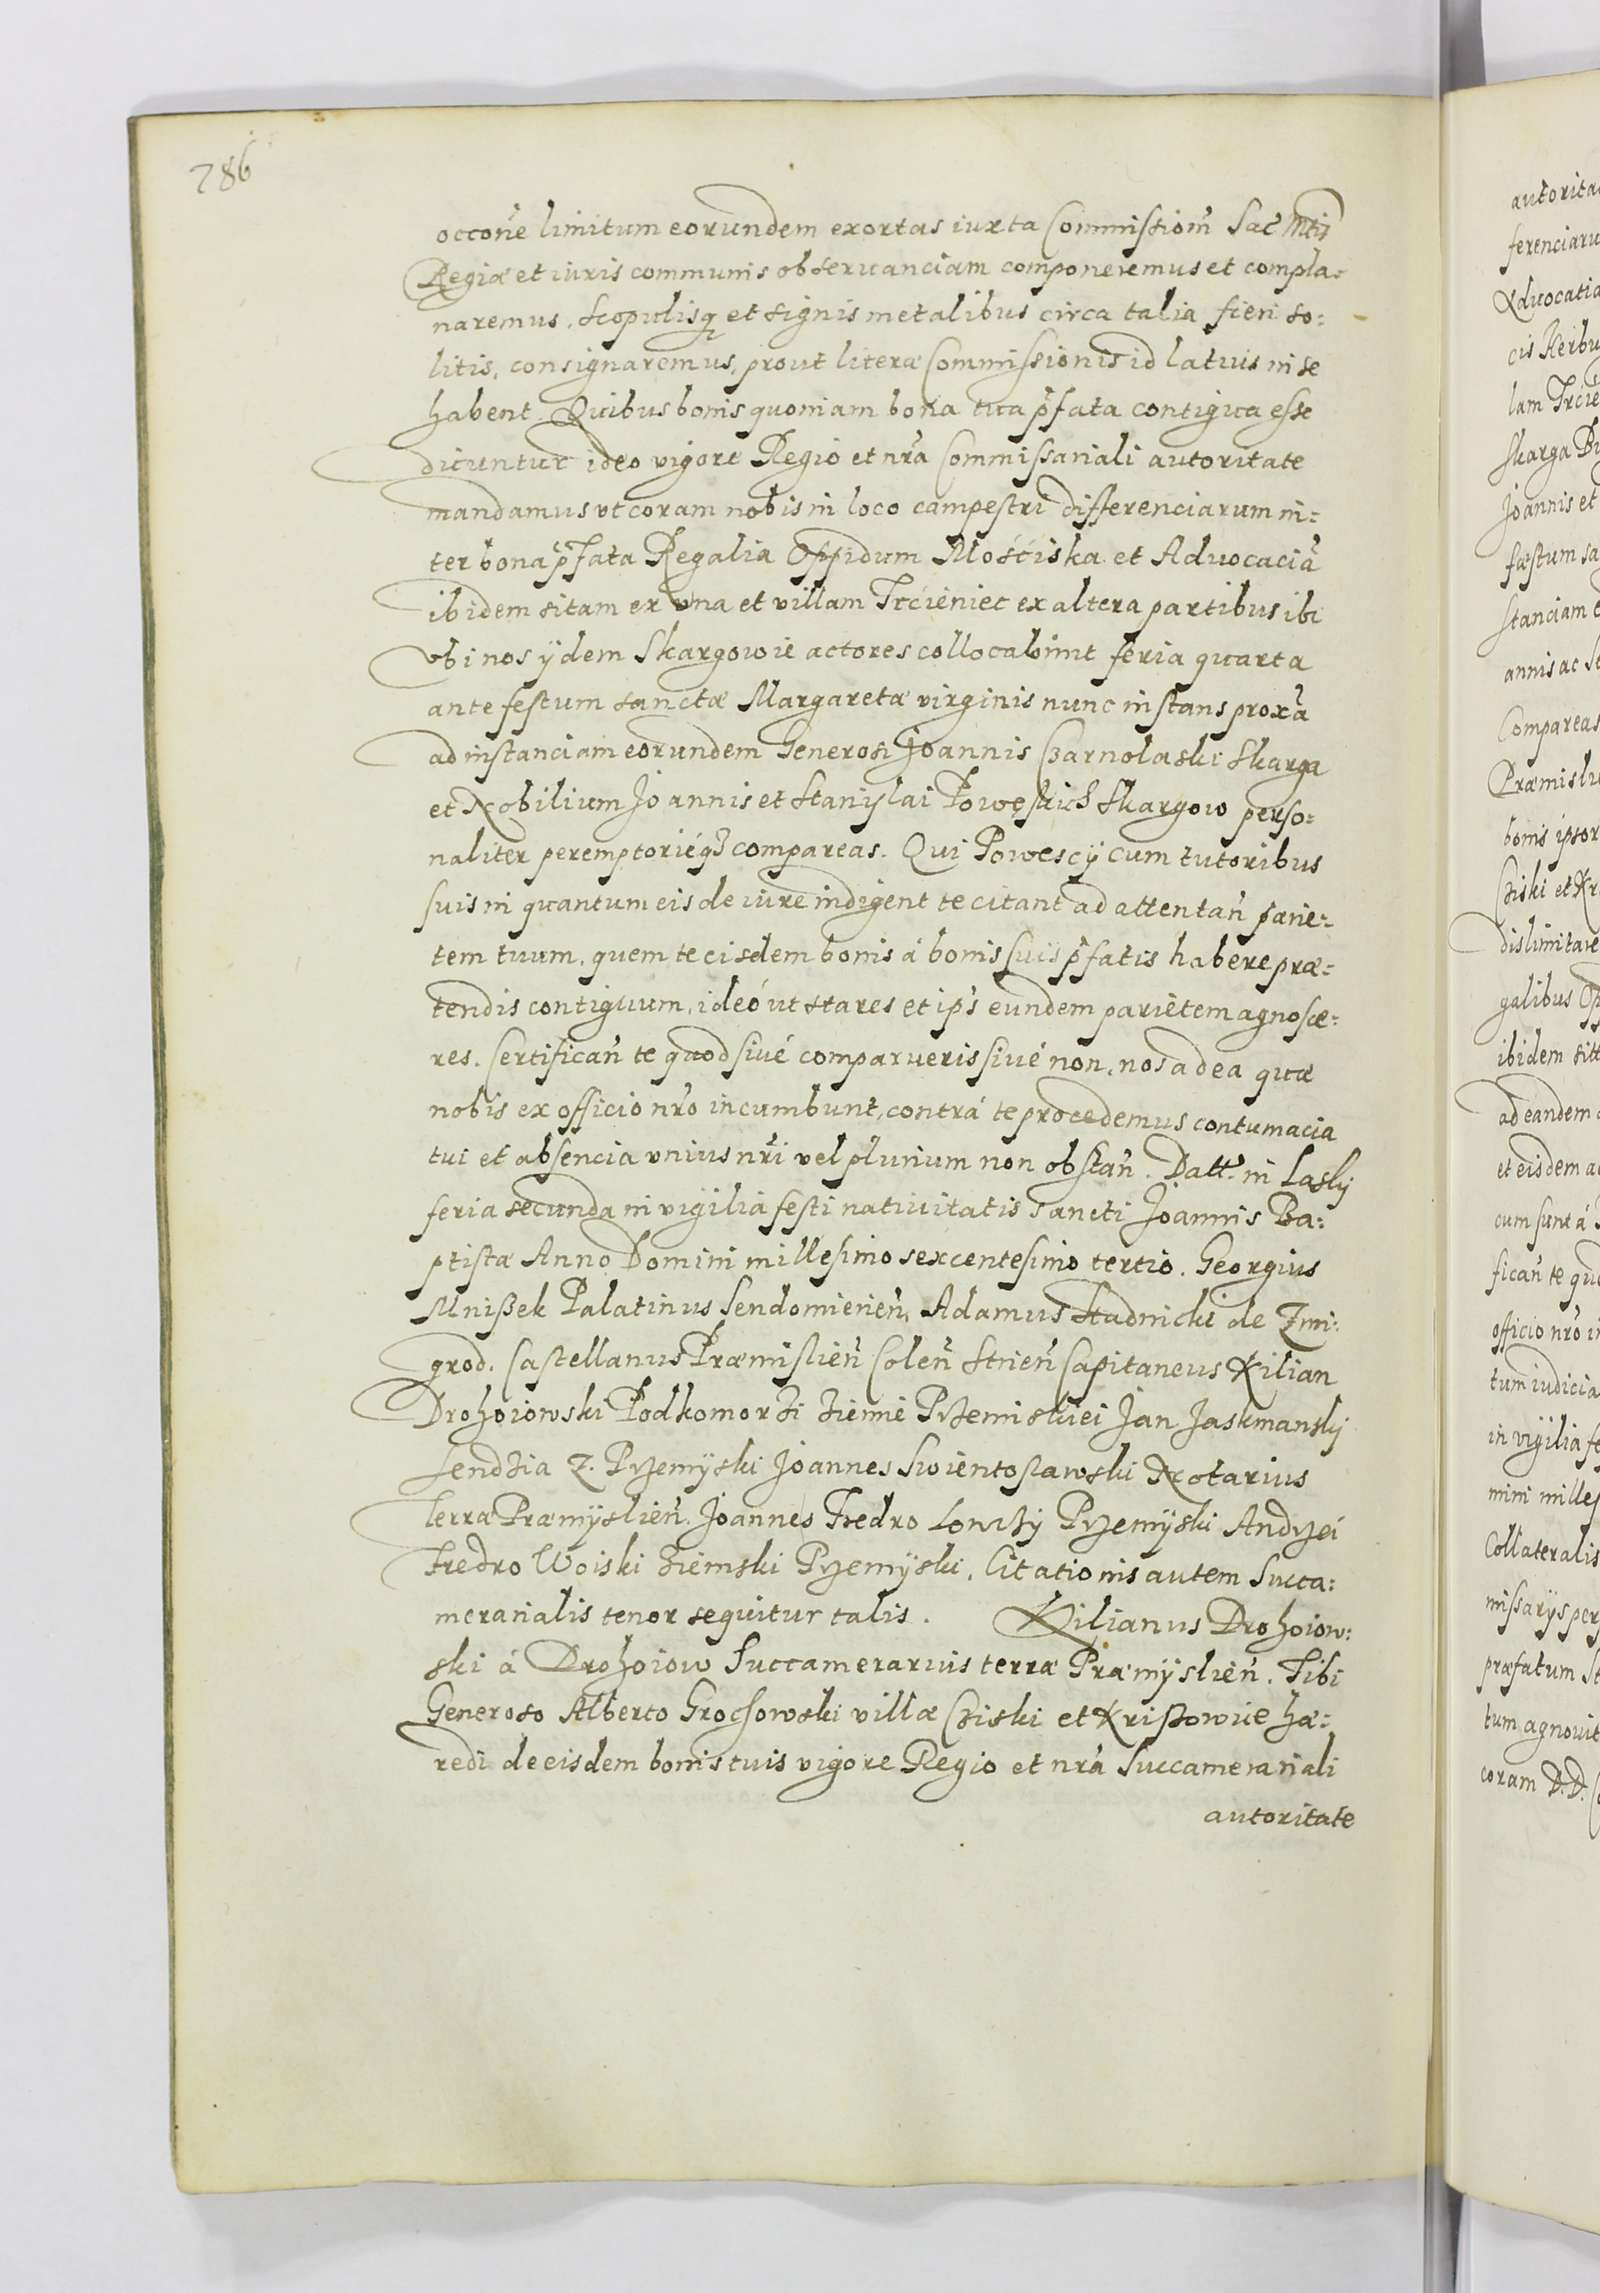 786
occoñe limitum eorundem exortas iuxta Commissioñ Sac̃ Mtis
Regiæ et iuris communis obseruanciam componeremus et compla=
naremus, scopulisq et signis metalibus circa talia fieri so=
litis, consignaremus, prout literæ Commissionis id latius in se
habent. Quibus bonis quoniam bona tua p̃fata contigua esse
dicuntur ideo vigore Regio et nr̃a Commissariali autoritate
mandamus vt coram nobis in loco campestri differenciarum in=
ter bona p̃fata Regalia Oppidum Mościska et Aduocaciã
ibidem sitam ex vna et villam Trcieniec ex altera partibus ibi
vbi nos ÿdem Skargowie actores collocabunt feria quarta
ante festum sanctæ Margaretæ virginis nunc instans proxã
ad instanciam eorundem Generosi Joannis Czarnolaski Skarga
et Nobilium Joannis et Stanislai Poweskich Skargow perso=
naliter peremptoriéq3 compareas. Qui Powescÿ cum tutoribus
suis in quantum eis de iure indigent te citant ad attentañ parie=
tem tuum, quem te eisdem bonis á bonis suis p̃fatis habere præ=
tendis contiguum, ideó ut stares et ip̃s eundem parietem agnosce=
res. Certificañ te quod siué comparueris siué non, nos ad ea quæ
nobis ex officio nr̃o incumbunt, contrá te procedemus contumacia
tui et absencia vnius nr̃i vel plurium non obstañ. Datt. in Lasky
feria secunda in vigilia festi natiuitatis Sancti Joannis Ba=
ptistæ Anno Domini millesimo sexcentesimo tertio. Georgius
Mnißek Palatinus Sendomirieñ, Adamus Stadnicki de Zmi=
grod. Castellanus Præmislieñ Coleñ Strieñ Capitaneus Kilian
Drohoiowski Podkomorzi ziemie Przemiskiei Jan Jaskmansky
Sendzia Z. Przemÿski Joannes Swientosławski Notarius
terræ Præmÿslieñ. Joannes Fredro Lowczÿ Przemÿski Andrzei
Fredro Woiski Ziemski Przemÿski. Citationis autem Succa=
merarialis tenor sequitur talis. Kilianus Drohoiow=
ski á Drohoiow Succamerarius terræ Præmÿslieñ. Tibi
Generoso Alberto Grochowski villæ Cziski et Krißowice hæ=
redi de eisdem bonis tuis vigore Regio et nr̃a Succamerariali
autoritate
ferenciaru
Aduocatia
cis Herbu
lam Trcie
Skarga
Joannis et
festum sa
stanciam e
annis ac
Compareas
Præmislie
bonis ipsor
Cziski et Kr
dislimitare
galibus
ibidem sit
ad eandem
et eisdem
cum sunt á
ficañ te quo
officio nr̃o in
tum iudicia
in vigilia fe
mini milles
Collateralis
missarÿs per
præfatum
tum agnouit
coram D.D.